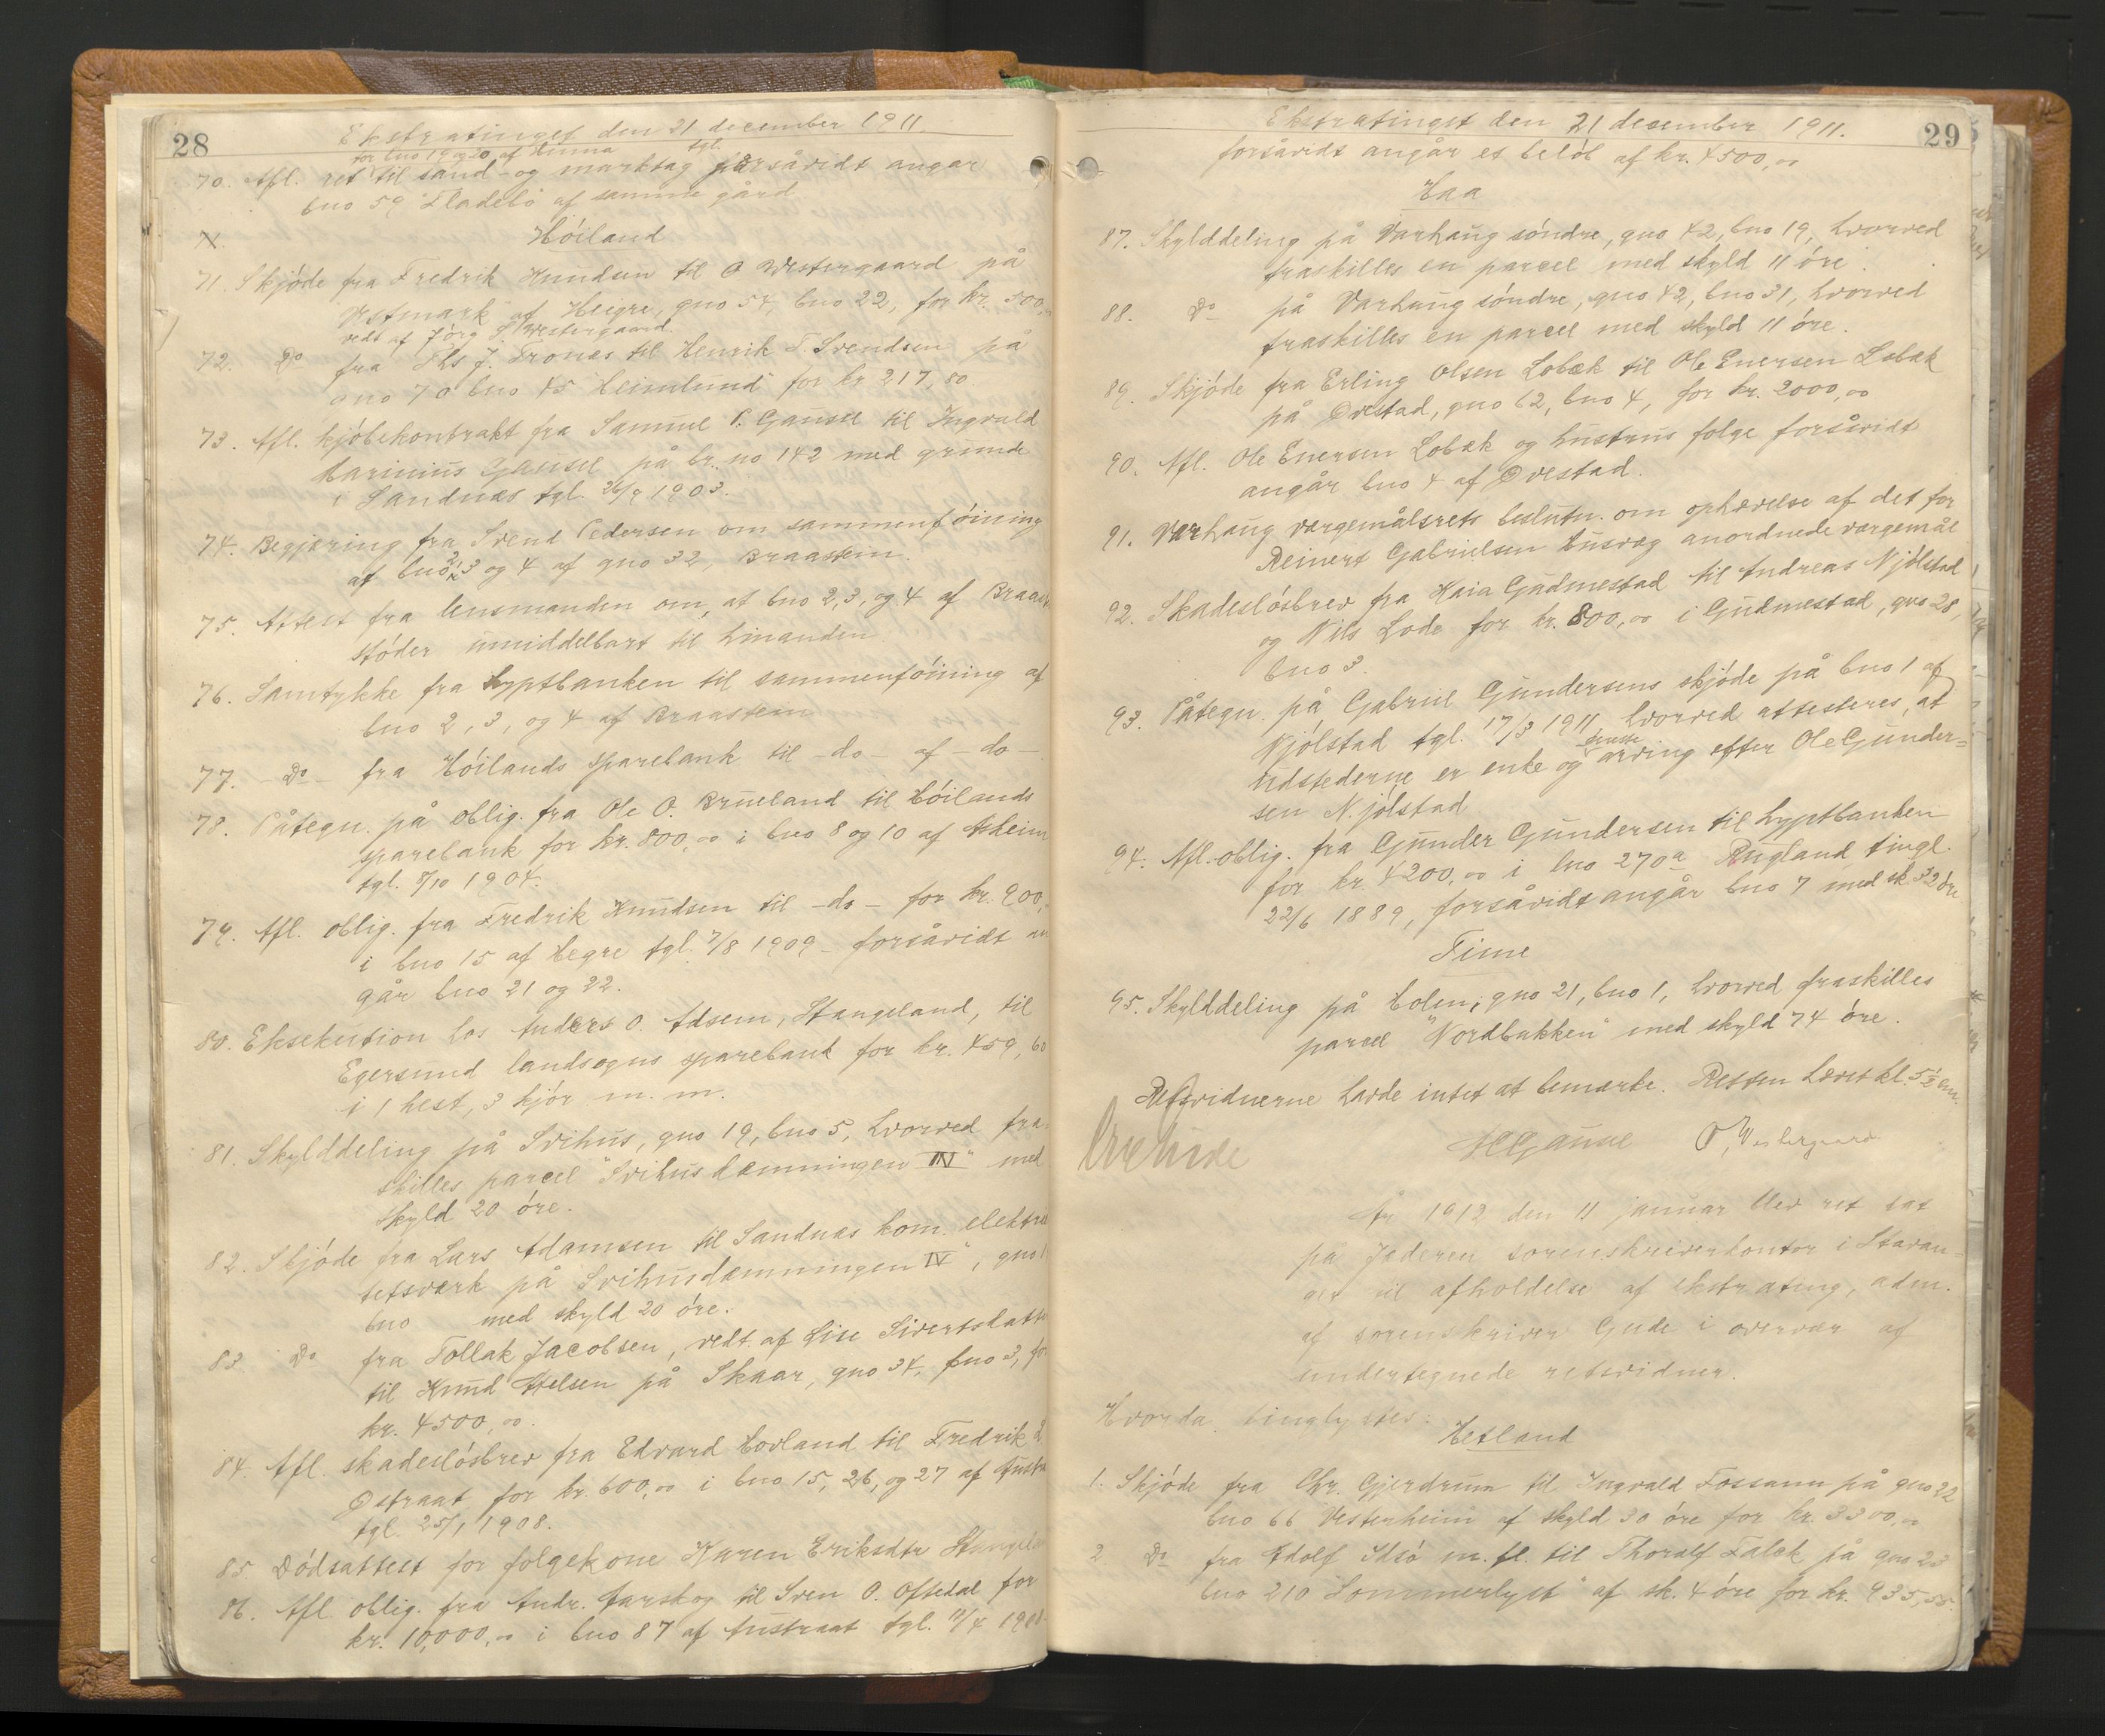 28
Ekstratinget den 21 december 1911.
for bno 19 og 20 af Hinna tgl.
70. Afl. ret til sand- og marktag forsåvidt angår
bno 59 Fladebö af samme gård
Höiland
71. Skjöde fra Fredrik Knudsen til O Westergaard på
Vestmark af Heigre, gno 54, bno 22, for kr. 500,
vedt af Jörg S. Westergaard.
72. Do fra Ths J. Trones til Henrik T. Svendsen på
gno 70 bno 45 Heimlund for kr 217,80
73. Afl. kjöbekontrakt fra Samuel P. Gausel til Ingvald
Marinius Gausel på br. no 142 med grunde
i Sandnæs tgl. 26/9 1903.
74. Begjæring fra Svend Pedersen om sammenföining
af bno 2, 3 og 4 af gno 32, Braastein.
75. Attest fra lensmanden om, at bno 2, 3, og 4 af Braast
stöder umiddelbart til hinanden
76. Samtykke fra hyptbanken til sammenföining af
bno 2, 3, og 4 af Braastein
77. - Do - fra Höilands sparebank til - do - af - do -
78. Påtegn. på oblig. fra Ole O. Brueland til Höilands
sparebank for kr. 800,00 i bno 8 og 10 af Asheim
tgl. 8/10 1904.
79. Afl. oblig. fra Fredrik Knudsen til - do - for kr. 900,
i bno 15 af Hegre tgl. 7/8 1909 - forsåvidt an
går bno 21 og 22.
80. Eksekution hos Anders O. Adsem, Stangeland, til
Egersund landsogns sparebank for kr. 459,60
i 1 hest, 3 kjör m. m.
81. Skylddeling på Svihus, gno 19, bno 5, hvorved fra
skilles parcel "Svihusdæmningen IV" med
skyld 20 öre.
82. Skjöde fra Lars Adamsen til Sandnæs kom. elektrici
tetsværk på Svihusdæmningen IV", gno 1
bno med skyld 20 öre.
83. Do fra Tollak Jacobsen, vedt. af Lise Sivertsdatter
til Knud Attelsen på Skaar, gno 34, bno 3, for
kr. 4500,00.
84. Afl. skadeslösbrev fra Edvard Hovland til Fredrik
Östraat for kr. 600,00 i bno 15, 26, og 27 af Austra
tgl. 25/1 1908.
85. Dödsattest for folgekone Karen Eriksdtr Stangelan
86. Afl. oblig. fra Andr. Aarskog til Sven O. Oftedal for
kr. 10,000,00 i bno 87 af Austraat tgl. 11/4 1908
29
Ekstratinget den 21 december 1911.
forsåvidt angår et belöb af kr. 4500,00
Haa
87. Skylddeling på Varhaug söndre, gno 42, bno 19, hvorved
fraskilles en parcel med skyld 11 öre.
88. Do på Varhaug söndre, gno 42, bno 31, hvorved
fraskilles en parcel med skyld 11 öre.
89. Skjöde fra Erling Olsen Lobæk til Ole Enersen Lobæk
på Ovestad, gno 62, bno 4, for kr. 2000,00
90. Afl. Ole Enersen Lobæk og hustrus folge forsåvidt
angår bno 4 af Ovestad.
91. Varhaug værgemålsrets beslutn. om ophævelse af det for
Reinert Gabrielsen Husvæg anordnede værgemål
92. Skadeslösbrev fra Maia Gudmestad til Andreas Njölstad
og Nils Lode for kr. 800,00 i Gudmestad, gno 28,
bno 3.
93. Påtegn. på Gabriel Gundersens skjöde på bno 1 af
Njölstad tgl. 17/3 1911, hvorved attesteres, at
udstederne er enke og eneste arving efter Ole Gunder=
sen Njölstad
94. Afl. oblig. fra Gunder Gundersen til hyptbanken
for kr 4200,00 i lno 270a Rugland tingl.
22/6 1889, forsåvidt angår bno 7 med sk. 32 öre.
Time
95. Skylddeling på Holen, gno 21, bno 1, hvorved fraskilles
parcel "Nordbakken" med skyld 74 öre.
Retsvidnerne havde intet at bemærke. Retten hævet kl. 5 1/2 em.
H Gausel O, Westergaard
År 1912 den 11 januar blev ret sat
på Jæderen sorenskriverkontor i Stavan-
ger til afholdelse af ekstrating, adm.
af sorenskriver Gude i overvær af
undertegnede retsvidner.
Hvorda tinglystes:
Hetland
1. Skjöde fra Chr. Gjerdrum til Ingvald Fossann på gno 22
bno 66 Vesterheim af skyld 30 öre for kr. 3300,00
2 Do fra Adolf Idsö m. fl. til Thoralf Falck på gno 23
bno 210 "Sommerlyst" af sk. 4 öre for kr. 935,55.